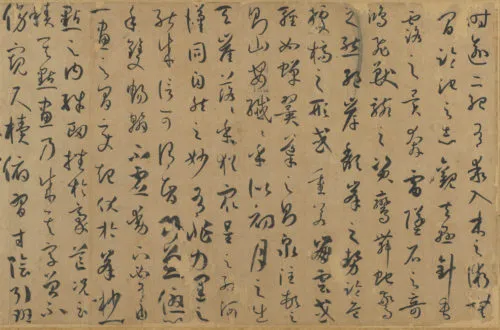 時逾二紀有乖入木之術無
間臨池之志觀夫懸針垂
露之異奔雷墜石之奇
鴻飛獸駭之資鸞舞蛇驚
之態絕岸頹峯之勢臨危
據槁之形或重若崩雲或
輕如蟬翼導之則泉注頓之
則山安纖纖乎似初月之出
天崖落落乎猶眾星之列河
漢同自然之妙有非力運之
能成信可謂智巧兼優心
手雙暢翰不虛動下必有由
一畫之間變起伏於峯杪一
點之內殊衄挫於豪芒況云
積其點畫乃成其字曾不
傍窺尺牘俯習寸陰引班